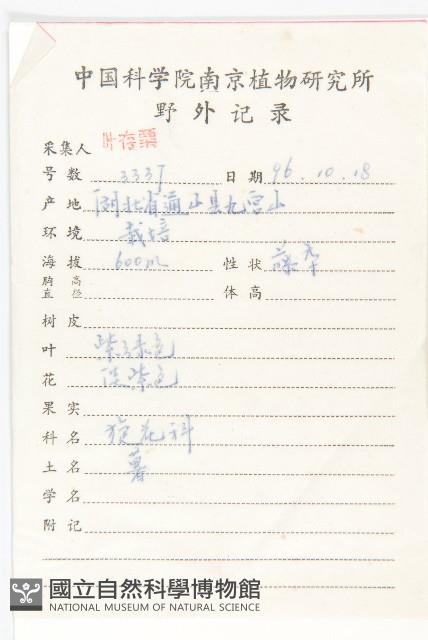 中国科学院南京植物研究所
野外记录
采集人 叶存粟
号数 3337 日期 96.10.18
产地 湖北省通山县九宫山
环境 栽培
海拔 600m 性状 藤本
胸高直径 体高
树皮
叶 紫绿色
花 淡紫色
果实
科名 旋花科
土名 薯
学名
附记
國立自然科學博物館
NATIONAL MUSEUM OF NATURAL SCIENCE